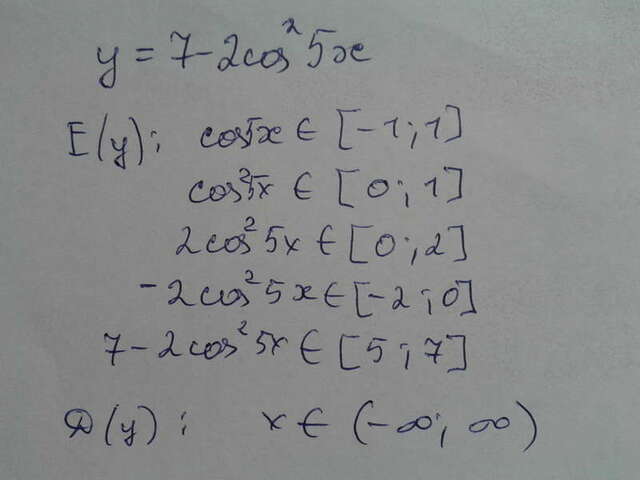 y = 7 - 2cos² 5x
E(y): cos5x ∈ [-1; 1]
cos²5x ∈ [0; 1]
2cos² 5x ∈ [0; 2]
-2cos² 5x ∈ [-2; 0]
7 - 2cos² 5x ∈ [5; 7]
D(y): x ∈ (-∞; ∞)